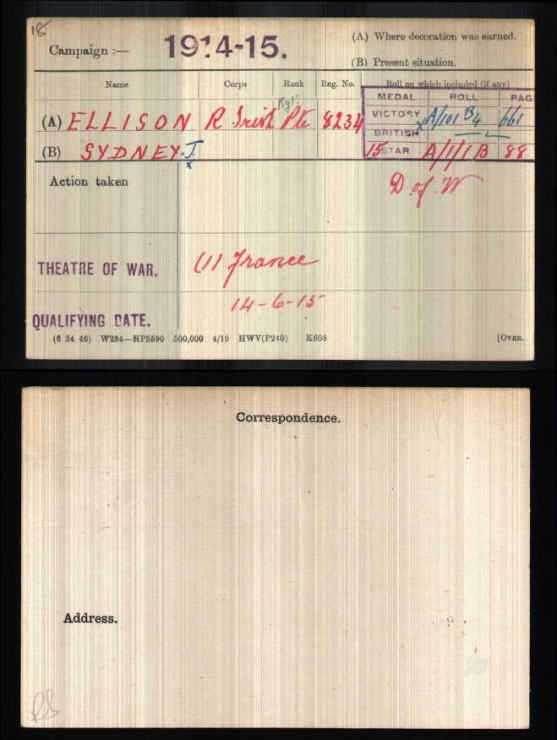 18
Campaign :— 1914-15.
(A) Where decoration was earned.
(B) Present situation.
Name Corps Rank Reg. No. Roll on which included (if any)
MEDAL ROLL PAGE
(A) ELLISON R Irish Rgt Pte 8234
VICTORY A/101 B4 661
BRITISH
(B) SYDNEY. J.
15 STAR A/1/1 B 88
Action taken
D of W
THEATRE OF WAR. (1) France
14-6-15
QUALIFYING DATE.
(6 34 46) W234—HP5590 500,000 4/19 HWV(P240) K608 [OVER.
Correspondence.
Address.